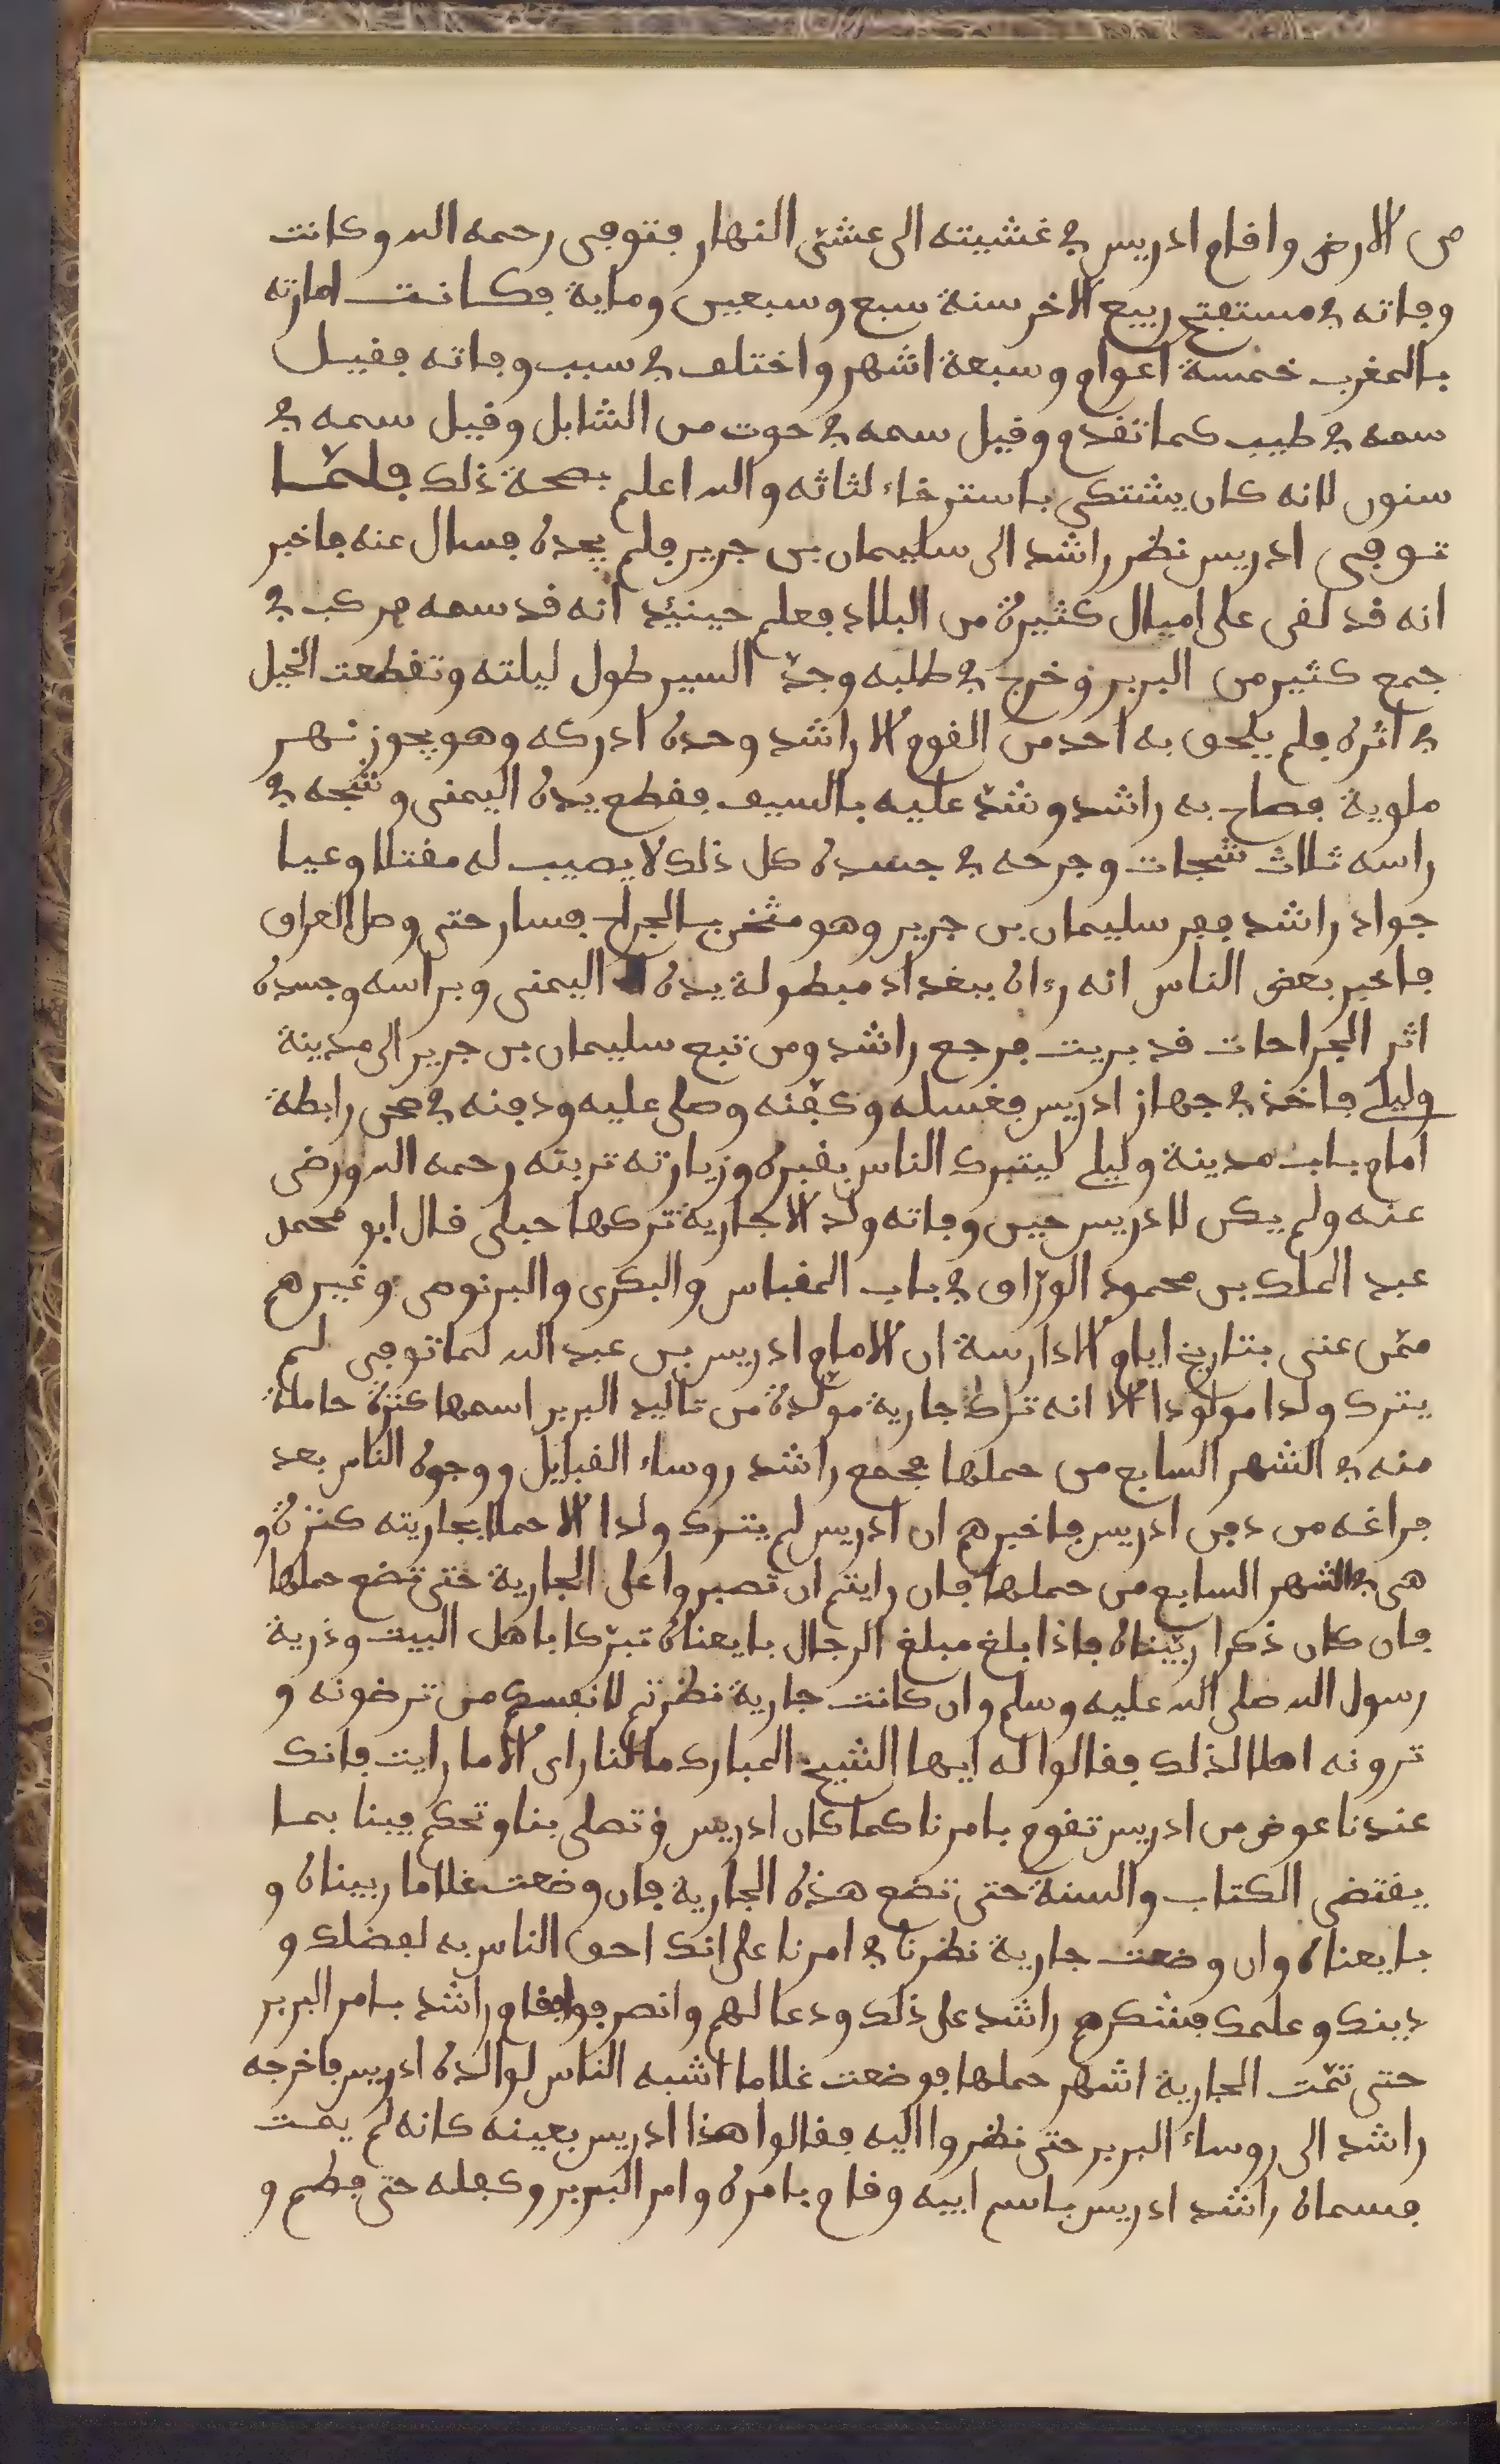 من الارض واقام ادريس في غشيته الى عشي النهار فتوفي رحمه الله وكانت
وفاته في مستفتح ربيع الاخر سنة سبع وسبعين وماية فكانت امارته
بالمغرب خمسة اعوام وسبعة اشهر واختلف في سبب وفاته فقيل
سمه في طيب كما تقدم وقيل سمه في حوت من الشابل وقيل سمه في
سنون لانه كان يشتكي باسترخاء لثاثه والله اعلم بصحة ذلك فلمّا
توفي ادريس نظر راشد الى سليمان بن جرير فلم يجده فسال عنه فاخبر
انه قد لقي على اميال كثيرة من البلاد فعلم حينيذ انه قد سمه فركب في
جمع كثير من البربر وخرج في طلبه وجدّ السير طول ليلته وتقطعت الخيل
في اثره فلم يلحق به احد من القوم الا راشد وحده ادركه وهو يجوز نهر
ملوية فصاح به راشد وشدّ عليه بالسيف فقطع يده اليمنى وشجه في
راسه ثلاث شجات وجرحه في جسده كل ذلك لا يصيب له مقتلا وعيا
جواد راشد ففر سليمان بن جرير وهو مثخن بالجراح فسار حتى وصل العراق
فاخبر بعض الناس انه رءاه ببغداد مبطولة يده اليمنى وبراسه وجسده
اثر الجراحات قد بريت فرجع راشد ومن تبع سليمان بن جرير الى مدينة
وليلي فاخذ في جهاز ادريس فغسله وكفّنه وصلى عليه ودفنه في صحن رابطة
امام باب مدينة وليلي ليتبرك الناس بقبره وزيارته تربته رحمه الله ورضي
عنه ولم يكن لادريس حين وفاته ولد الا جارية تركها حبلى قال ابو محمد
عبد الملك بن محمود الورّاق في باب المقباس والبكري والبرنوصي وغيرهم
ممّن عنى بتاريخ ايام الادارسة ان الامام ادريس بن عبد الله لما توفي لم
يترك ولدا مولودا الا انه ترك جارية مولّدة من تاليد البربر اسمها كنزة حاملة
منه في الشهر السابع من حملها فجمع راشد روساء القبايل ووجوه الناس بعد
فراغه من دفن ادريس فاخبرهم ان ادريس لم يترك ولدا الا حملا بجاريته كنزة و
هي في الشهر السابع من حملها فان رايتم ان تصبروا على الجارية حتى تضع حملها
فان كان ذكرا ربّيناه فاذا بلغ مبلغ الرجال بايعناه تبرّكا باهل البيت وذرية
رسول الله صلى الله عليه وسلم وان كانت جارية نظرتم لانفسكم من ترضونه و
ترونه اهلا لذلك فقالوا له ايها الشيخ المبارك ما لنا راى الا ما رايت فانك
عندنا عوض من ادريس تقوم بامرنا كما كان ادريس وتصلى بنا وتحكم فينا بما
يقتضى الكتاب والسنة حتى تضع هذه الجارية فان وضعت غلاما ربيناه و
بايعناه وان وضعت جارية نظرنا في امرنا على انك احق الناس به لفضلك و
دينك وعلمك فشكرهم راشد على ذلك ودعا لهم وانصرفوا فقام راشد بامر البربر
حتى تمّت الجارية اشهر حملها فوضعت غلاما اشبه الناس لوالده ادريس فاخرجه
راشد الى روساء البربر حتى نظروا اليه فقالوا هذا ادريس بعينه كانه لم يمت
فسماه راشد ادريس باسم ابيه وقام بامره وامر البربر وكفله حتى فطم و